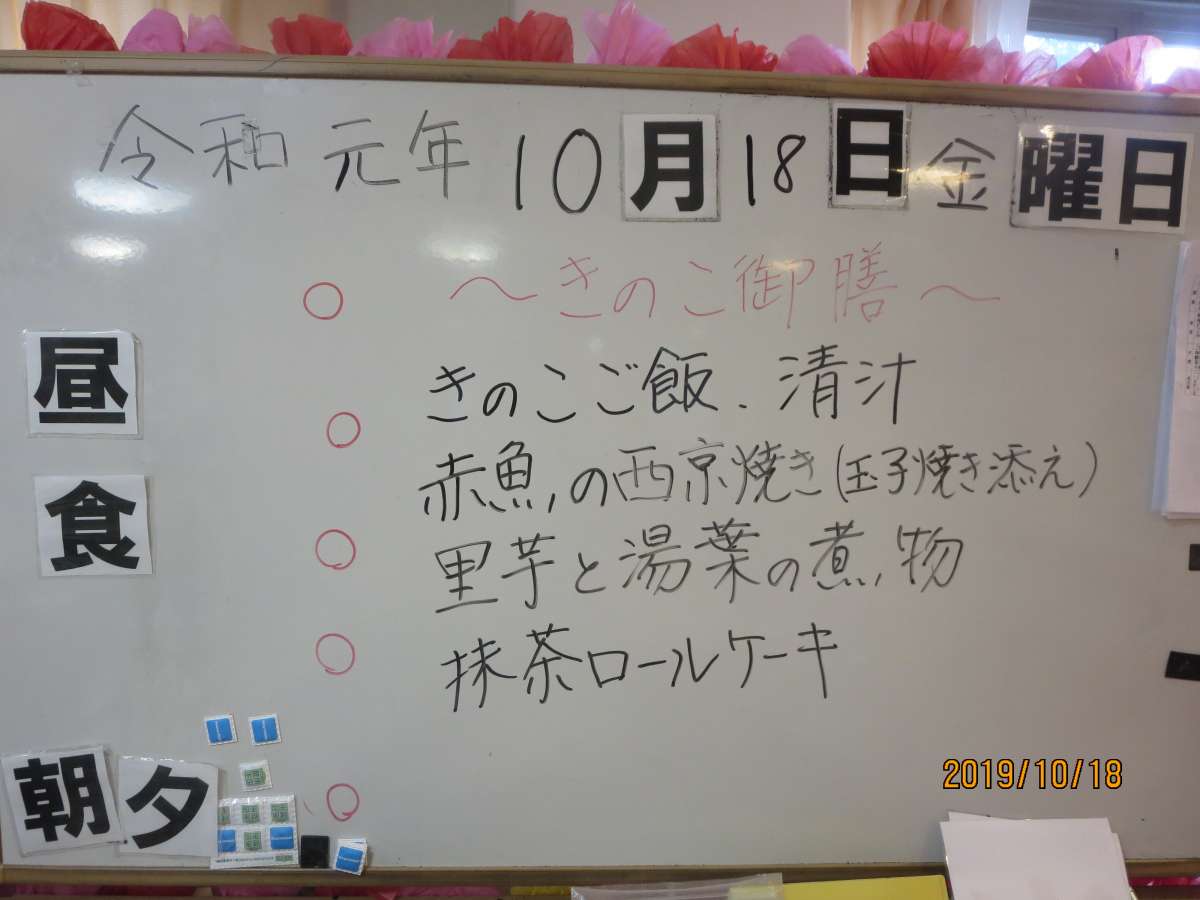 令和元年10月18日金曜日
～きのこ御膳～
昼食
きのこご飯、清汁
赤魚の西京焼き(玉子焼き添え)
里芋と湯葉の煮物
抹茶ロールケーキ
朝夕
2019/10/18